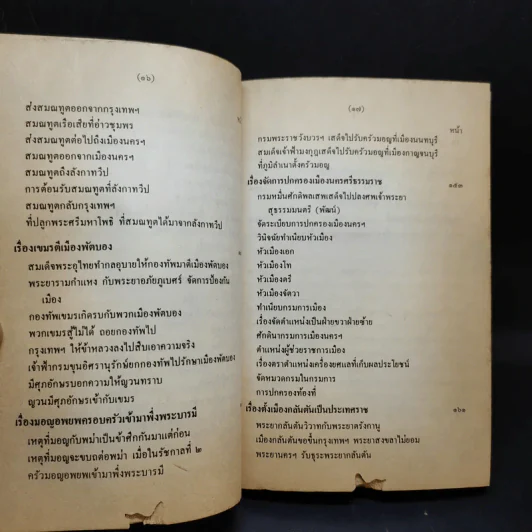 (๑๖)
ส่งสมณทูตออกจากกรุงเทพฯ
สมณทูตเรือเสียที่อ่าวชุมพร
ส่งสมณทูตต่อไปถึงเมืองนครฯ
สมณทูตออกจากเมืองนครฯ
สมณทูตถึงลังกาทวีป
การต้อนรับสมณทูตที่ลังกาทวีป
สมณทูตกลับกรุงเทพฯ
ที่ปลูกพระศรีมหาโพธิ ที่สมณทูตได้มาจากลังกาทวีป
เรื่องเขมรตีเมืองพัตบอง
สมเด็จพระอุไทยทำกลอุบายให้กองทัพมาตีเมืองพัตบอง
พระยารามกำแหง กับพระยาอภัยภูเบศร์ จัดการป้องกัน
เมือง
กองทัพเขมรเกิดรบกับพวกเมืองพัตบอง
พวกเขมรสู้ไม่ได้ ถอยกองทัพไป
กรุงเทพฯ ให้ข้าหลวงลงไปสืบเอาความจริง
เจ้าฟ้ากรมขุนอิศรานุรักษ์ยกกองทัพไปรักษาเมืองพัตบอง
มีศุภอักษรบอกความให้ญวนทราบ
ญวนมีศุภอักษรเข้ากับเขมร
เรื่องมอญอพยพครอบครัวเข้ามาพึ่งพระบารมี
เหตุที่มอญกับพม่าเป็นข้าศึกกันมาแต่ก่อน
เหตุที่มอญจะขบถต่อพม่า เมื่อในรัชกาลที่ ๒
ครัวมอญอพยพเข้ามาพึ่งพระบารมี
(๑๗)
หน้า
กรมพระราชวังบวรฯ เสด็จไปรับครัวมอญที่เมืองนนทบุรี
สมเด็จเจ้าฟ้ามงกุฎเสด็จไปรับครัวมอญที่เมืองกาญจนบุรี
ที่ภูมิลำเนาตั้งครัวมอญ
เรื่องจัดการปกครองเมืองนครศรีธรรมราช ๑๕๓
กรมหมื่นศักดิพลเสพเสด็จไปปลงศพเจ้าพระยา
สุธรรมมนตรี (พัฒน์)
จัดระเบียบการปกครองเมืองนครฯ
วินิจฉัยทำเนียบหัวเมือง
หัวเมืองเอก
หัวเมืองโท
หัวเมืองตรี
หัวเมืองจัตวา
ทำเนียบกรมการเมือง
เรื่องจัดตำแหน่งเป็นฝ่ายขวาฝ่ายซ้าย
ศักดินากรมการเมืองนครฯ
ตำแหน่งผู้ช่วยราชการเมือง
เรื่องตราตำแหน่งเครื่องยศแลที่เก็บผลประโยชน์
จัดหมวดกรมในกรมการ
การปกครองท้องที่
เรื่องตั้งเมืองกลันตันเป็นประเทศราช ๑๖๑
พระยากลันตันวิวาทกับพระยาตรังกานู
เมืองกลันตันขอขึ้นกรุงเทพฯ พระยาสงขลาไม่ยอม
พระยานครฯ รับธุระพระยากลันตัน